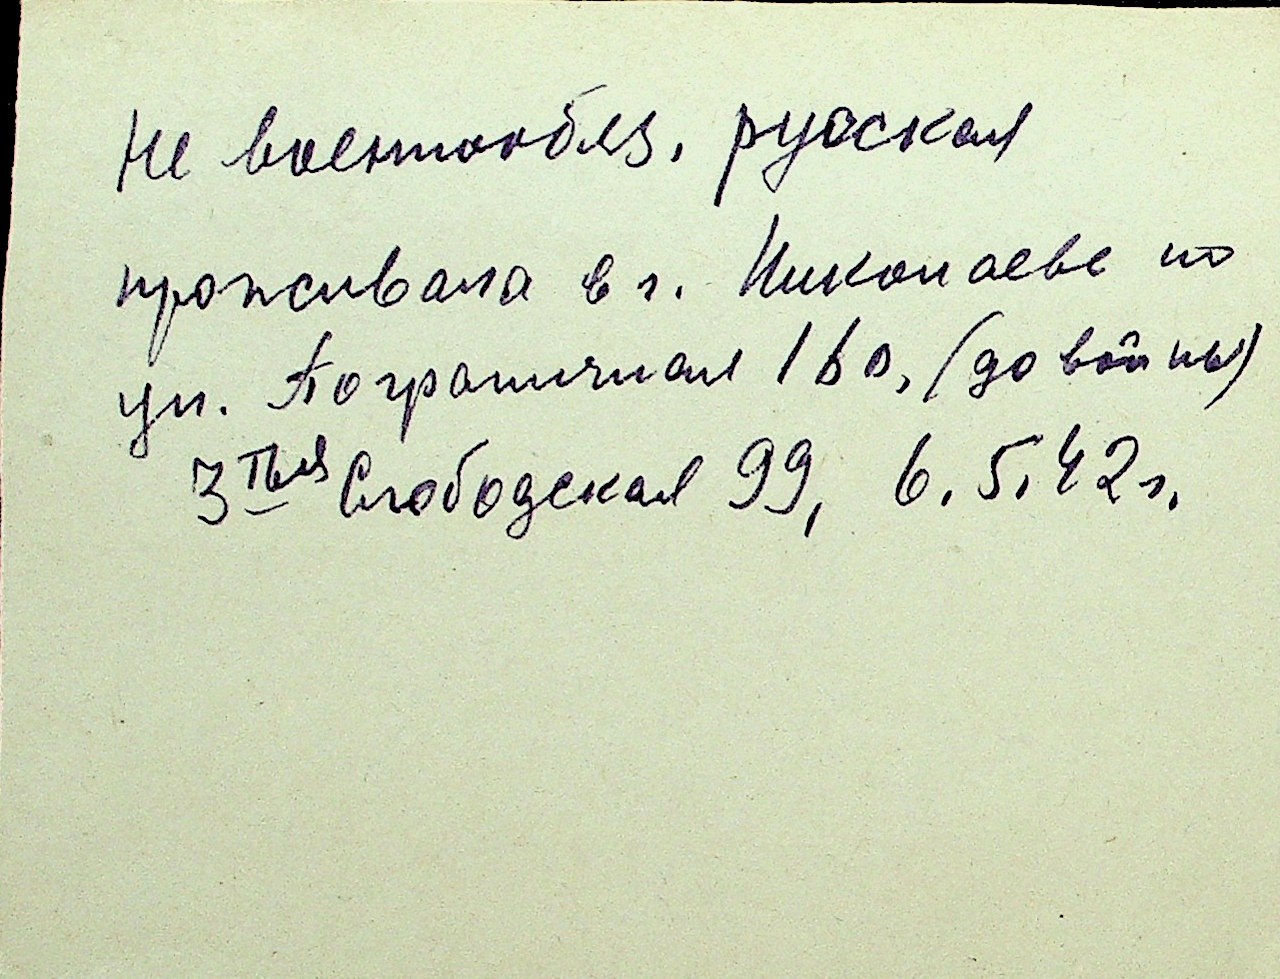 Не военнообяз, русская
проживала в г. Николаеве по
ул. Пограничная 160, (до войны)
3тья Слободская 99, 6.5.42г.